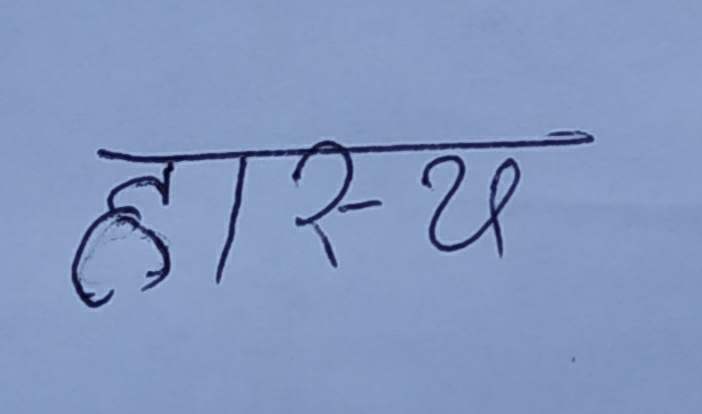 हास्य